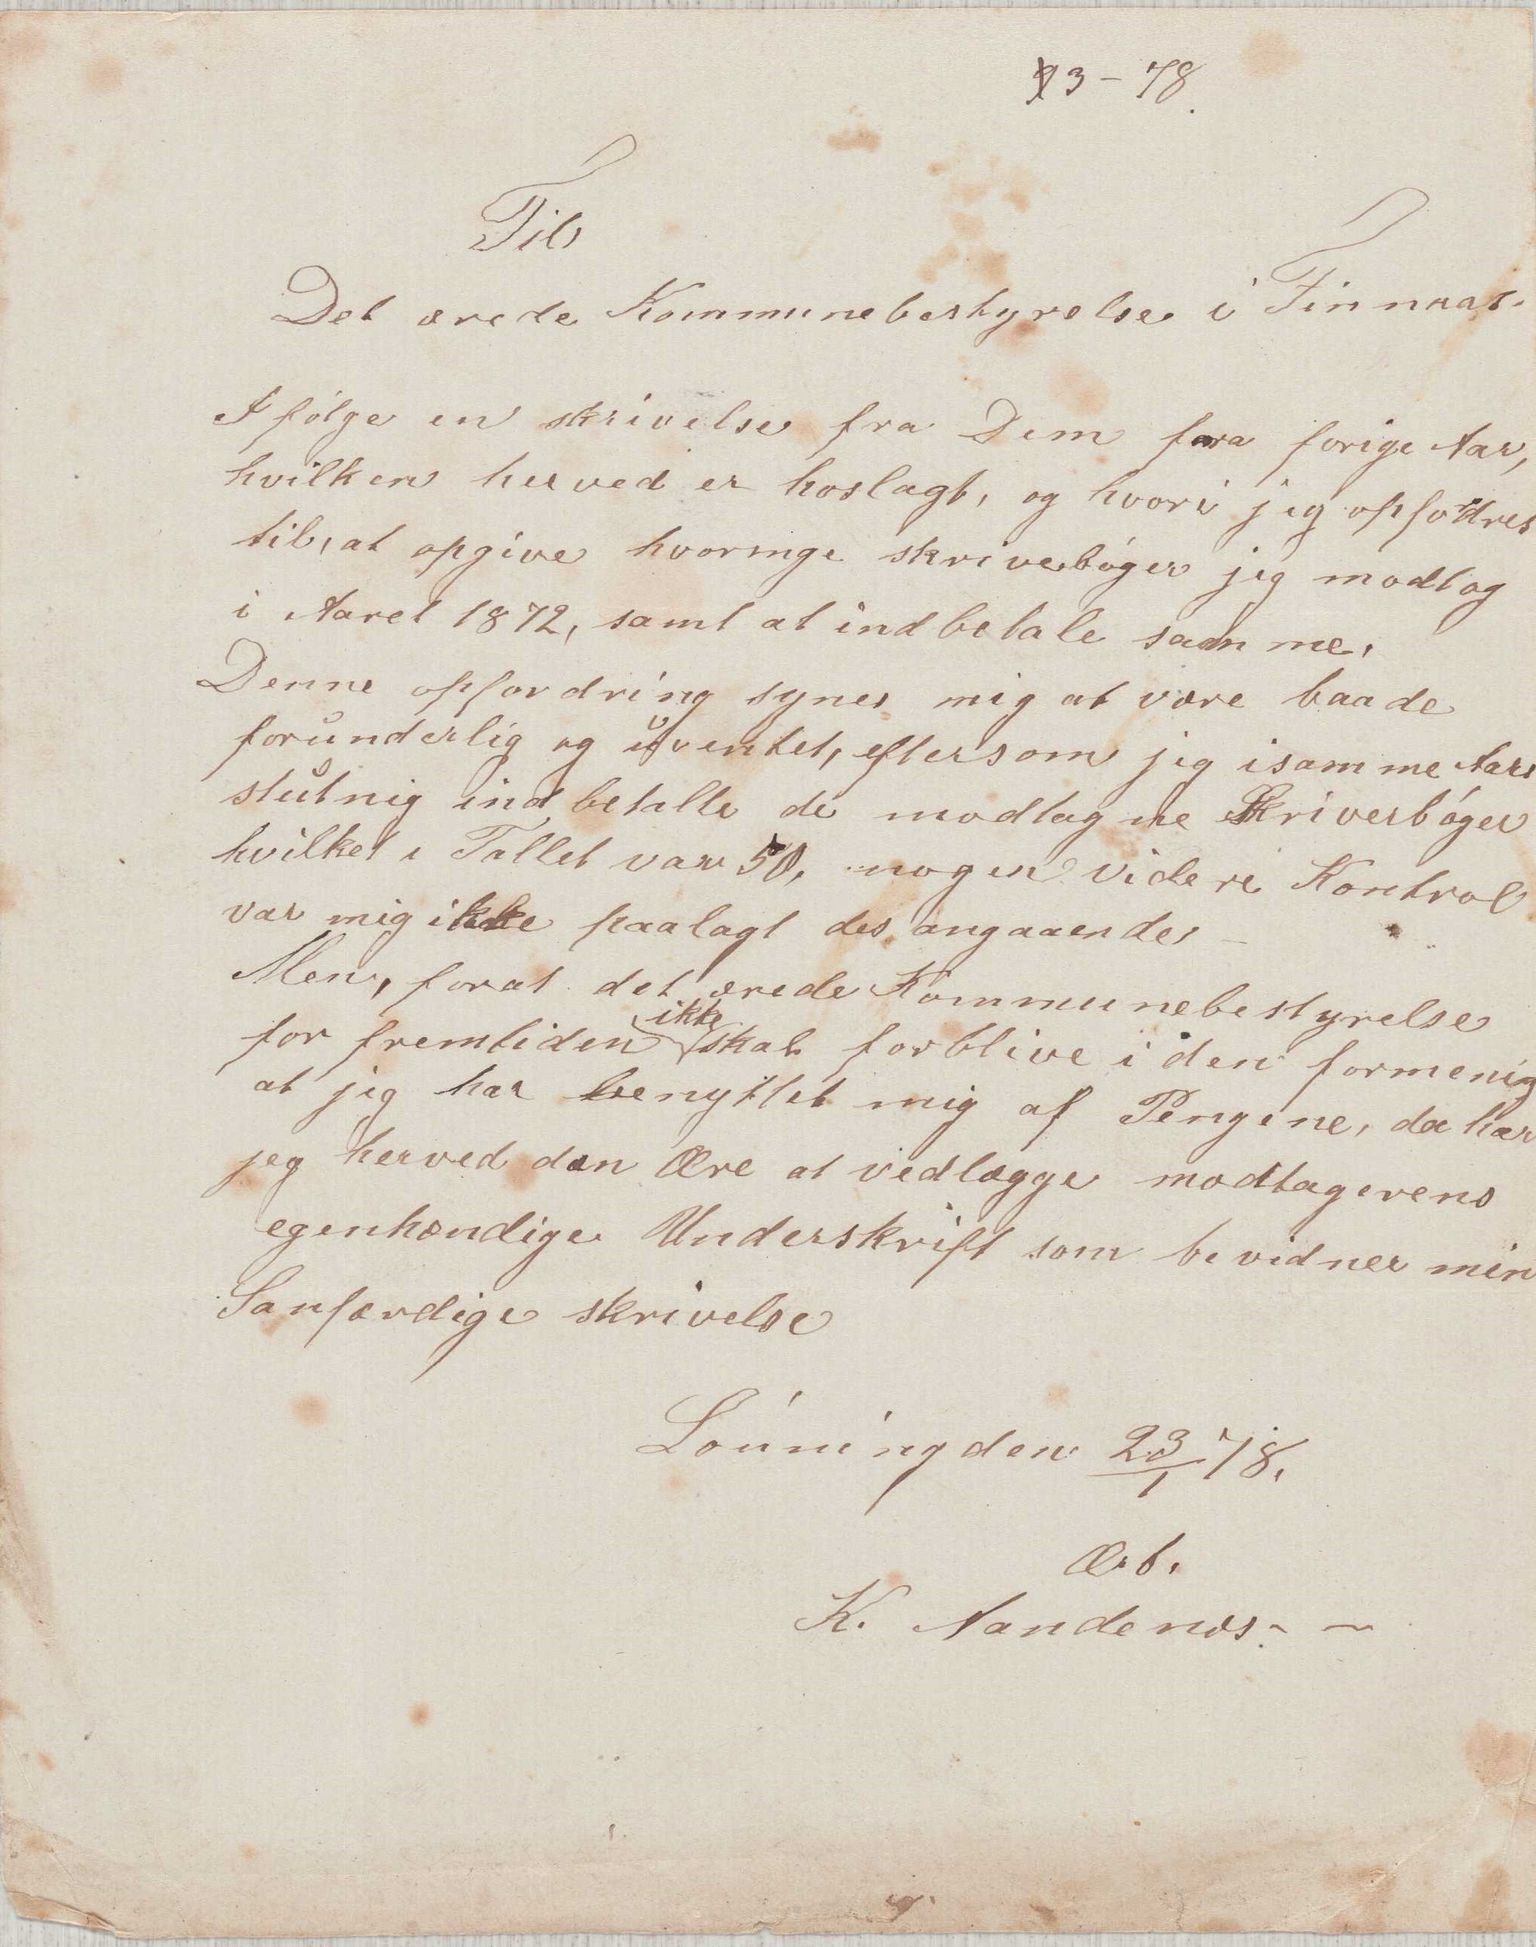 3 - 78.
Til
Det ærede Kommunebestyrelse i Finnaas.
Ifølge en skrivelse fra Dem fra forige Aar,
hvilken herved er hoslagt, og hvori jeg opfordres
til, at opgive hvormge skrivebøger jeg modtog
i Aaret 1872, samt at indbetale samme.
Denne opfordring synes mig at være baade
forunderlig og uventet, eftersom jeg isamme Aars
slutnig indbetalte de modtagne Skrivebøger
hvilket i Tallet var 50, nogen videre Kontrol
var mig ikke paalagt des angaaende,
Men, forat det ærede Kommunebestyrelse
for fremtiden ikke skal forblive i den formenig
at jeg har benyttet mig af Pengene, da har
jeg herved den Ære at vedlægge modtagerens
egenhændige Underskrift som bevidner min
Sanfærdige skrivelse
Louning den 23/1 78.
Ærb.
K. Nandenæs